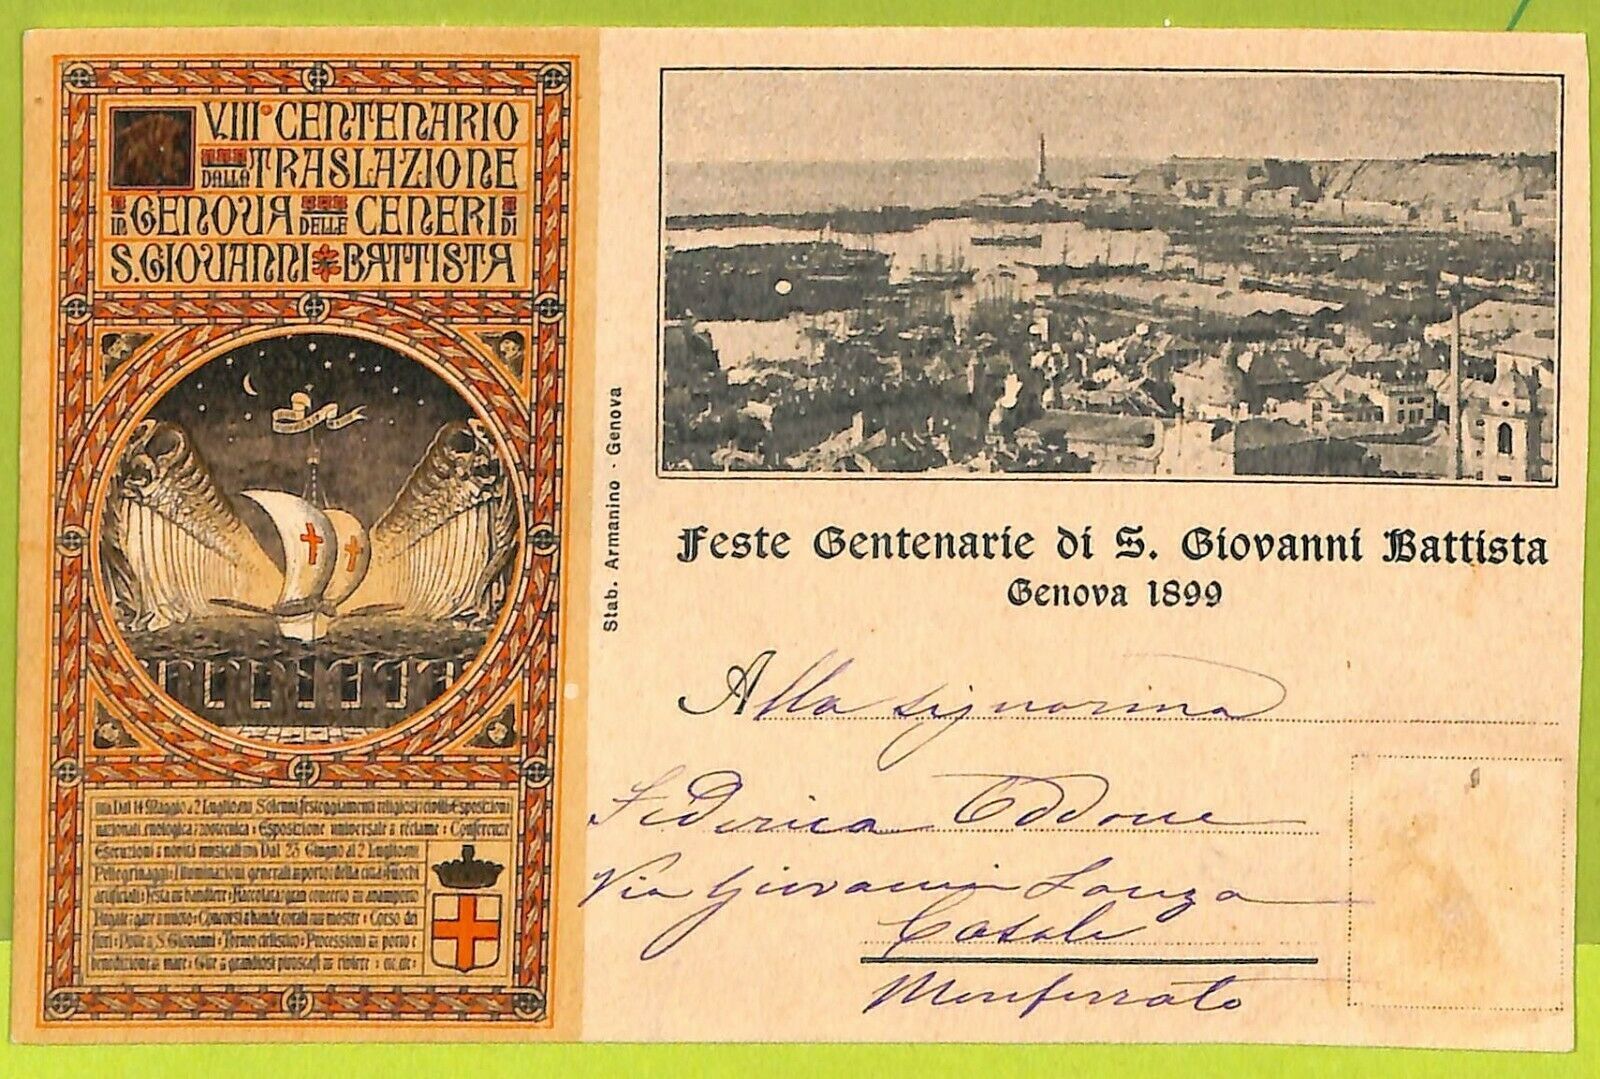 VIII° CENTENARIO
DALLA TRASLAZIONE
IN GENOVA DELLE CENERI DI
S. GIOVANNI BATTISTA
Dal 14 Maggio a 2 Luglio Solenni festeggiamenti religiosi civili Esposizioni
nazionali enologica zootecnica Esposizione universale réclame Conferenze
Esecuzioni novità musicali Dal 23 Giugno al 2 Luglio
Pellegrinaggi Illuminazioni generali porto della città Fuochi
artificiali Festa bandiere Fiaccolata gran concerto
Regate gare a nuoto Concorsi bande corali mostre Corso dei
fiori S. Giovanni Torneo ciclistico Processioni in porto e
benedizione mare Gite grandiosi piroscafi riviere
Stab. Armanino · Genova
Feste Centenarie di S. Giovanni Battista
Genova 1899
Alla signorina
Federica Oddone
Via Giovanni Lanza
Casale
Monferrato